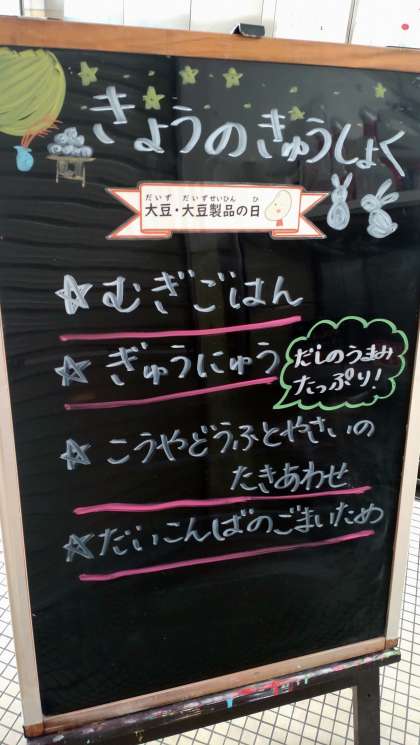 きょうのきゅうしょく
だいず だいずせいひん ひ
大豆・大豆製品の日
☆むぎごはん
☆ぎゅうにゅう
だしのうまみ
たっぷり!
☆こうやどうふとやさいの
たきあわせ
☆だいこんばのごまいため